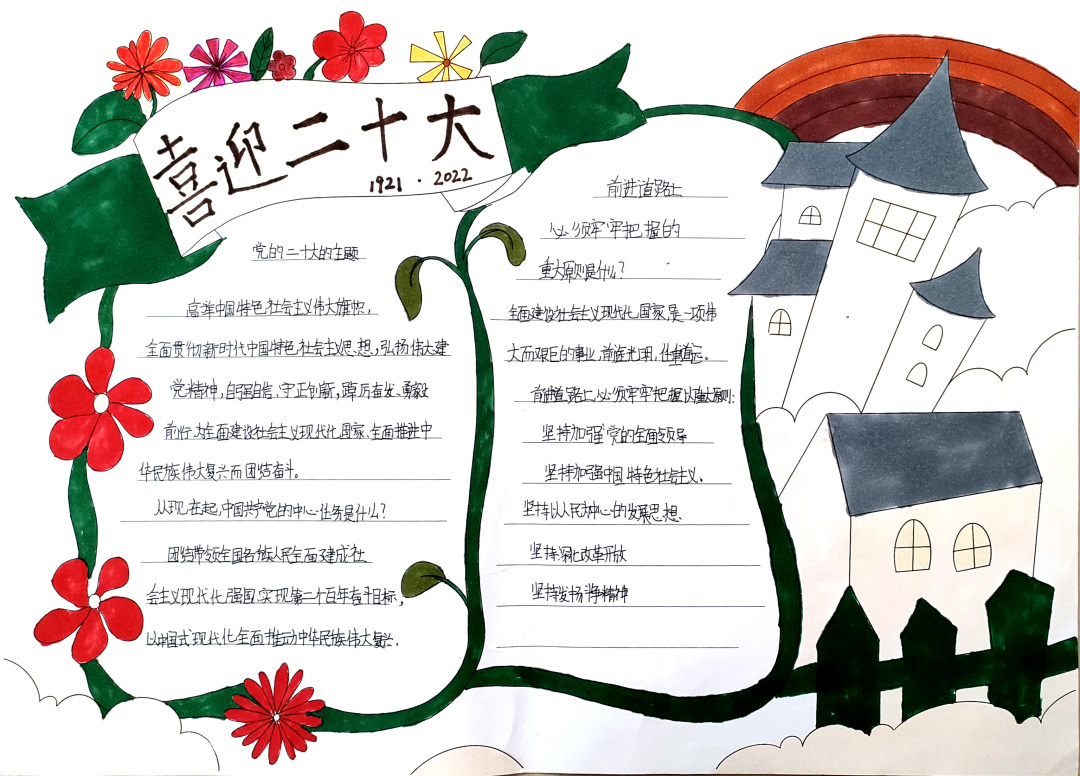 喜迎二十大
1921 · 2022
党的二十大的主题
高举中国特色社会主义伟大旗帜，
全面贯彻新时代中国特色社会主义思想，弘扬伟大建
党精神，自强自信、守正创新，踔厉奋发、勇毅
前行，为全面建设社会主义现代化国家、全面推进中
华民族伟大复兴而团结奋斗。
从现在起，中国共产党的中心任务是什么？
团结带领全国各族人民全面建成社
会主义现代化强国，实现第二个百年奋斗目标，
以中国式现代化全面推动中华民族伟大复兴。
前进道路上
必须牢牢把握的
重大原则是什么？
全面建设社会主义现代化国家，是一项伟
大而艰巨的事业，前途光明，任重道远。
前进道路上，必须牢牢把握以重大原则：
坚持加强党的全面领导
坚持加强中国特色社会主义。
坚持以人民为中心的发展思想
坚持深化改革开放
坚持发扬斗争精神